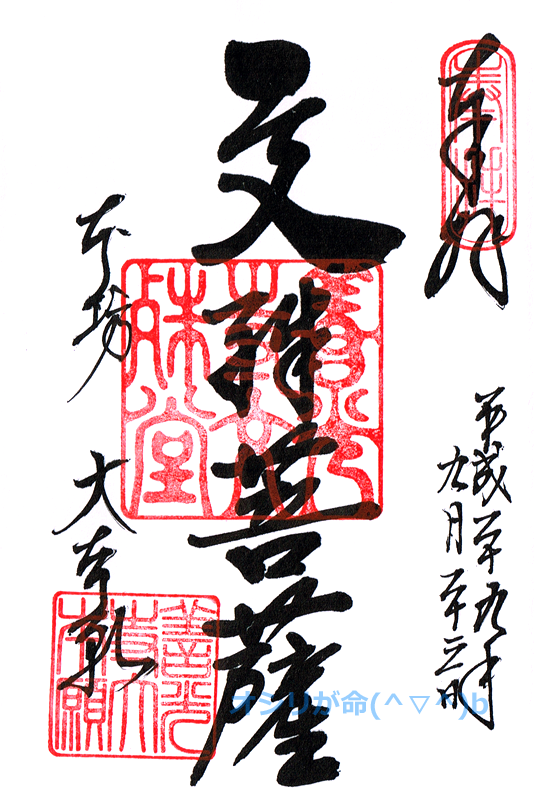 奉拝
平成二十九年
九月二十三日
文殊菩薩
本坊 大本願
オシリが命(^▽^)b